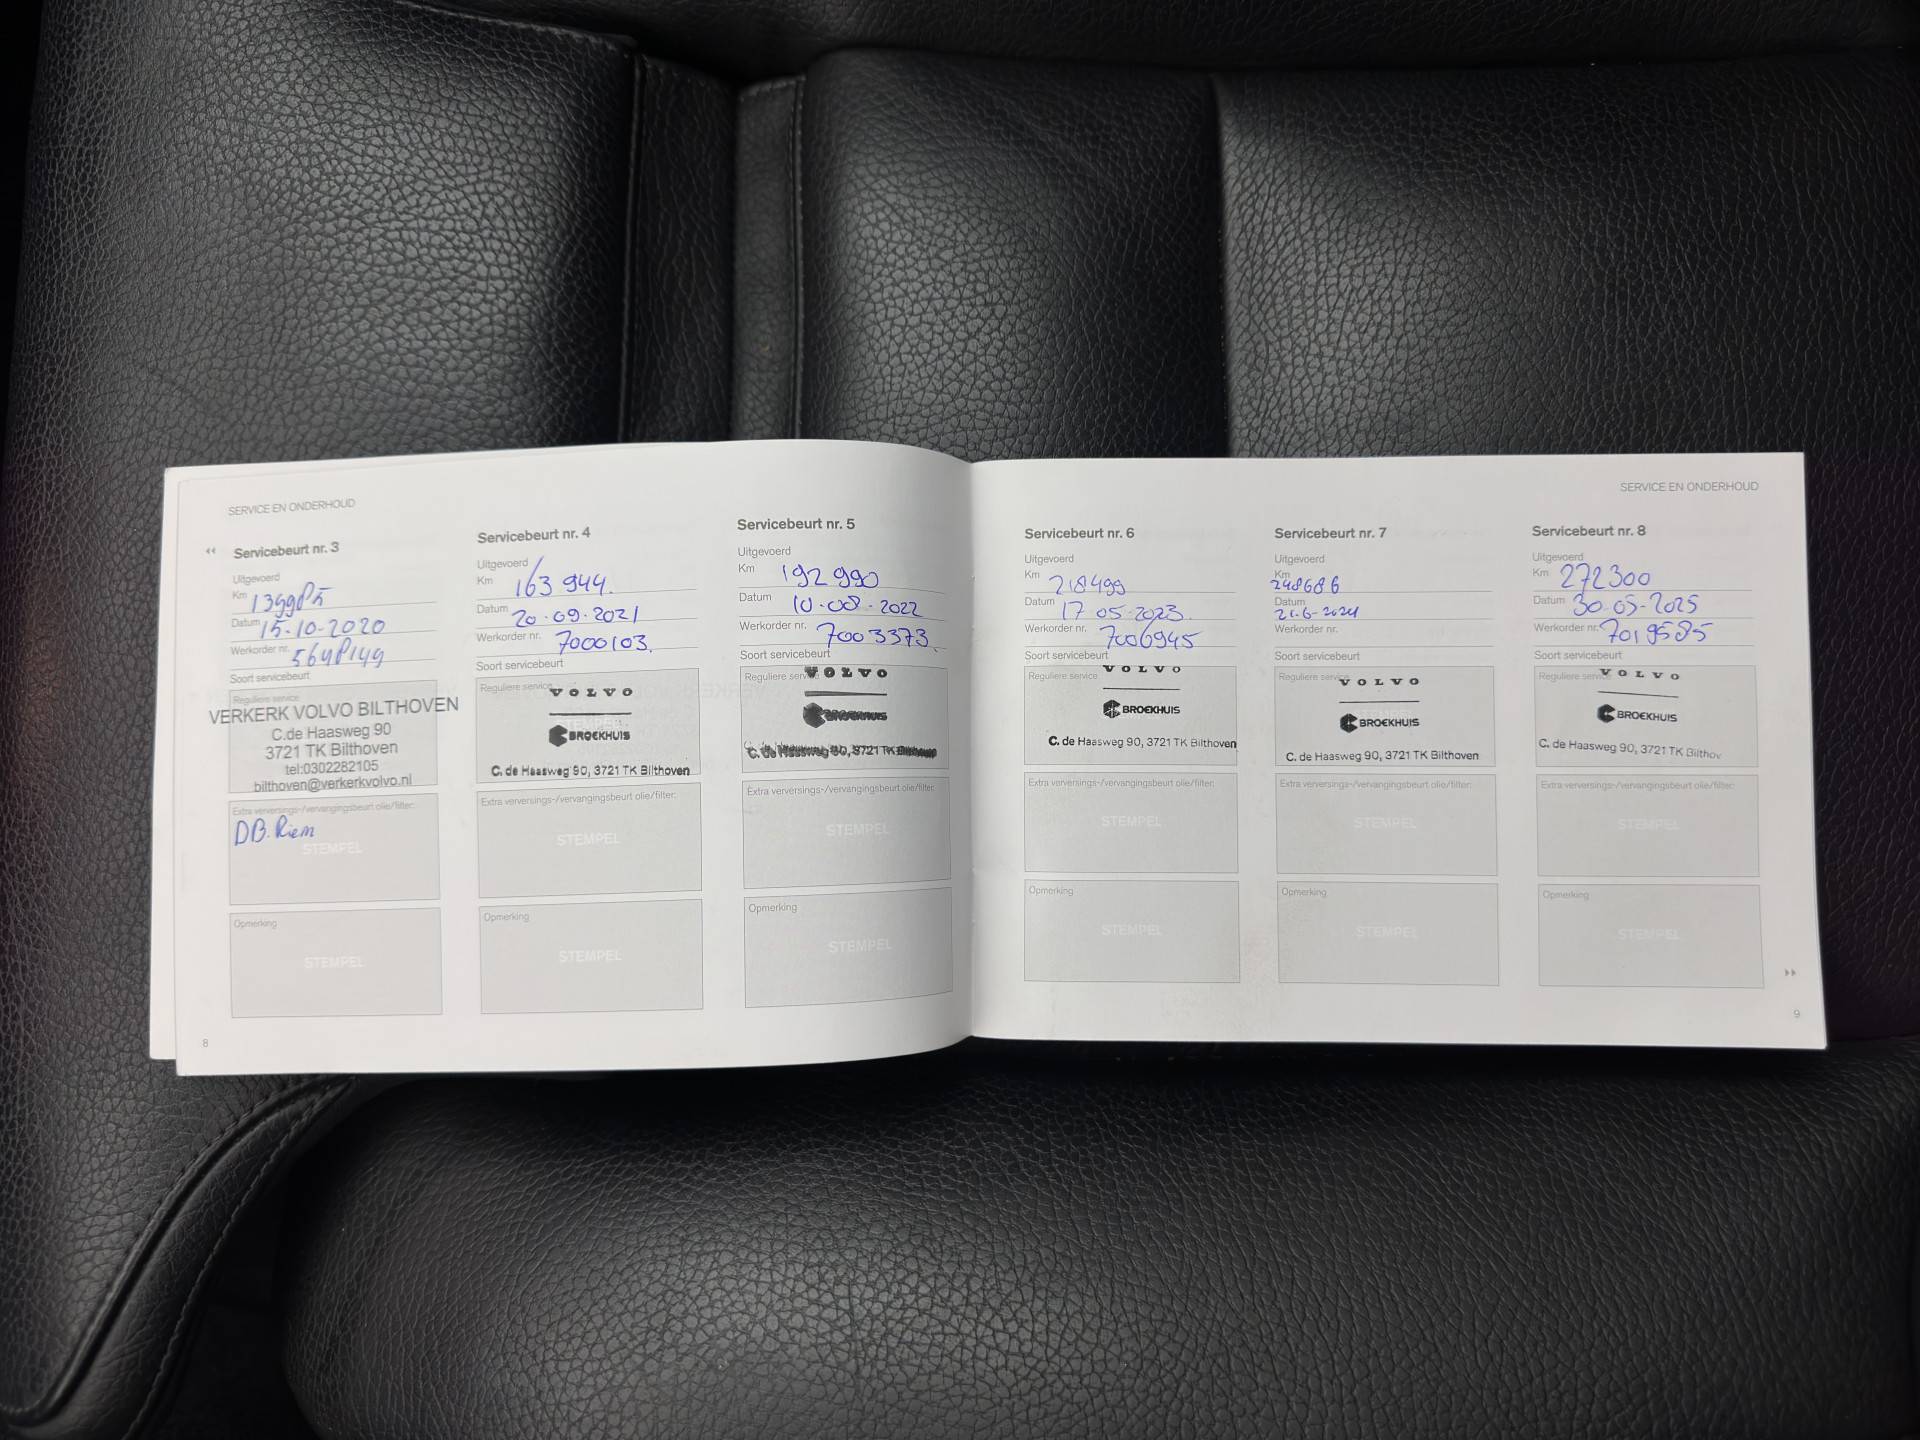 SERVICE EN ONDERHOUD
Servicebeurt nr. 3
Uitgevoerd
Km 139985
Datum 15-10-2020
Werkorder nr. 5648149
Soort servicebeurt
Reguliere service
VERKERK VOLVO BILTHOVEN
C.de Haasweg 90
3721 TK Bilthoven
tel:0302282105
bilthoven@verkerkvolvo.nl
Extra verversings-/vervangingsbeurt olie/filter:
DB. Riem
STEMPEL
Opmerking
STEMPEL
8
Servicebeurt nr. 4
Uitgevoerd
Km 163 944.
Datum 20-09-2021
Werkorder nr. 7000103.
Soort servicebeurt
Reguliere service
VOLVO
BROEKHUIS
C. de Haasweg 90, 3721 TK Bilthoven
Extra verversings-/vervangingsbeurt olie/filter:
STEMPEL
Opmerking
STEMPEL
Servicebeurt nr. 5
Uitgevoerd
Km 192 990
Datum 10-08-2022
Werkorder nr. 7003373.
Soort servicebeurt
Reguliere service
VOLVO
BROEKHUIS
C. de Haasweg 90, 3721 TK Bilthoven
Extra verversings-/vervangingsbeurt olie/filter:
STEMPEL
Opmerking
STEMPEL
SERVICE EN ONDERHOUD
Servicebeurt nr. 6
Uitgevoerd
Km 218499
Datum 17 05-2023.
Werkorder nr. 7006945
Soort servicebeurt
Reguliere service
VOLVO
BROEKHUIS
C. de Haasweg 90, 3721 TK Bilthoven
Extra verversings-/vervangingsbeurt olie/filter:
STEMPEL
Opmerking
STEMPEL
Servicebeurt nr. 7
Uitgevoerd
Km
248686
Datum
21-6-2024
Werkorder nr.
Soort servicebeurt
Reguliere service
VOLVO
BROEKHUIS
C. de Haasweg 90, 3721 TK Bilthoven
Extra verversings-/vervangingsbeurt olie/filter:
STEMPEL
Opmerking
STEMPEL
Servicebeurt nr. 8
Uitgevoerd
Km 272300
Datum 30-05-2025
Werkorder nr. 7019585
Soort servicebeurt
Reguliere service
VOLVO
BROEKHUIS
C. de Haasweg 90, 3721 TK Bilthov
Extra verversings-/vervangingsbeurt olie/filter:
STEMPEL
Opmerking
STEMPEL
9